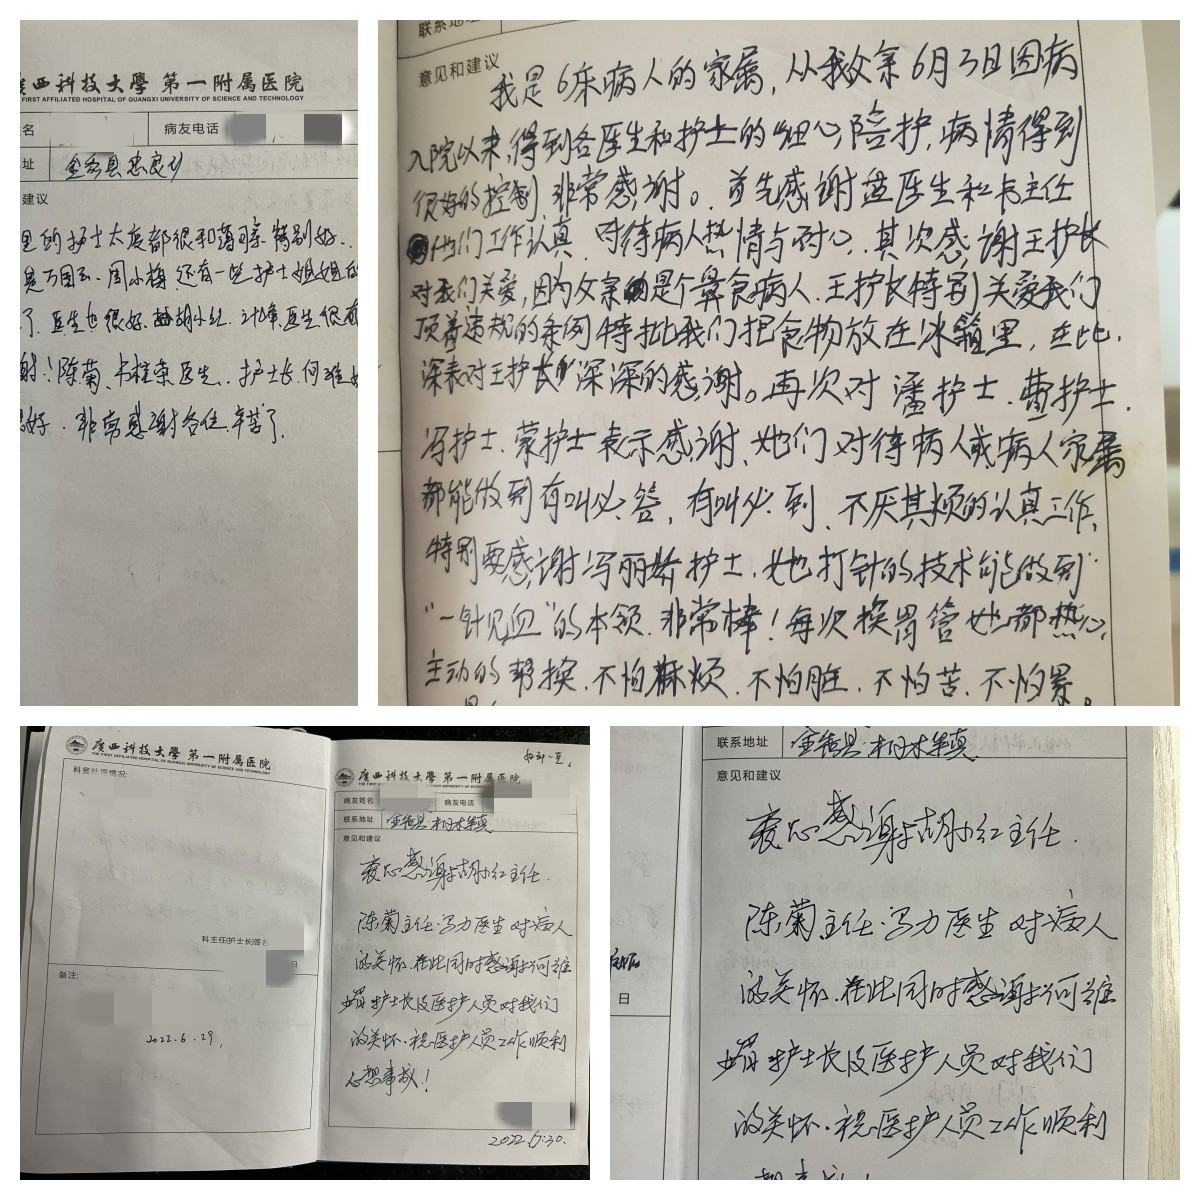 廣西科技大學 第一附属医院
FIRST AFFILIATED HOSPITAL OF GUANGXI UNIVERSITY OF SCIENCE AND TECHNOLOGY
名 病友电话
址
建议
里的护士大底都很和蔼可亲.特别好..
周小梅.还有一些护士姐姐
了.医生也很好.胡小红.医生很
谢:陈菊.韦桂荣医生..护士长何
好.非常感谢各位.辛苦了.
联系地址
意见和建议
我是6床病人的家属,从我父亲6月3日因病
入院以来,得到各医生和护士的细心陪护,病情得到
很好的控制,非常感谢。首先感谢蓝医生和韦主任
他们工作认真,对待病人热情与耐心.其次感谢王护长
对我们关爱,因为父亲是个鼻食病人.王护长特别关爱我们
顶着违规的条例特批我们把食物放在冰箱里,在此.
深表对王护长深深的感谢。再次对潘护士.曹护士.
冯护士.蒙护士表示感谢、她们对待病人或病人家属
都能做到有叫必答,有叫必到、不厌其烦的认真工作,
特别要感谢冯丽娇护士.她打针的技术能做到"
"一针见血"的本领.非常棒!每次换胃管她都热心,
主动的帮换.不怕麻烦.不怕脏.不怕苦.不怕累。
廣西科技大學 第一附属医院
THE FIRST AFFILIATED HOSPITAL OF GUANGXI UNIVERSITY OF SCIENCE AND TECHNOLOGY
科室处理情况:
科主任(护士长)签名
日
备注:
2022.6.29,
廣西科技大學 第一附属医院
病友姓名 病友电话
联系地址
意见和建议
衷心感谢胡小红主任.
陈菊主任.冯力医生对病人
的关怀.在此同时感谢何维
娟护士长及医护人员对我们
的关怀.祝医护人员工作顺利
心想事成!
2022.6.30.
联系地址
意见和建议
衷心感谢胡小红主任.
陈菊主任.冯力医生对病人
的关怀.在此同时感谢何维
日
娟护士长及医护人员对我们
的关怀.祝医护人员工作顺利